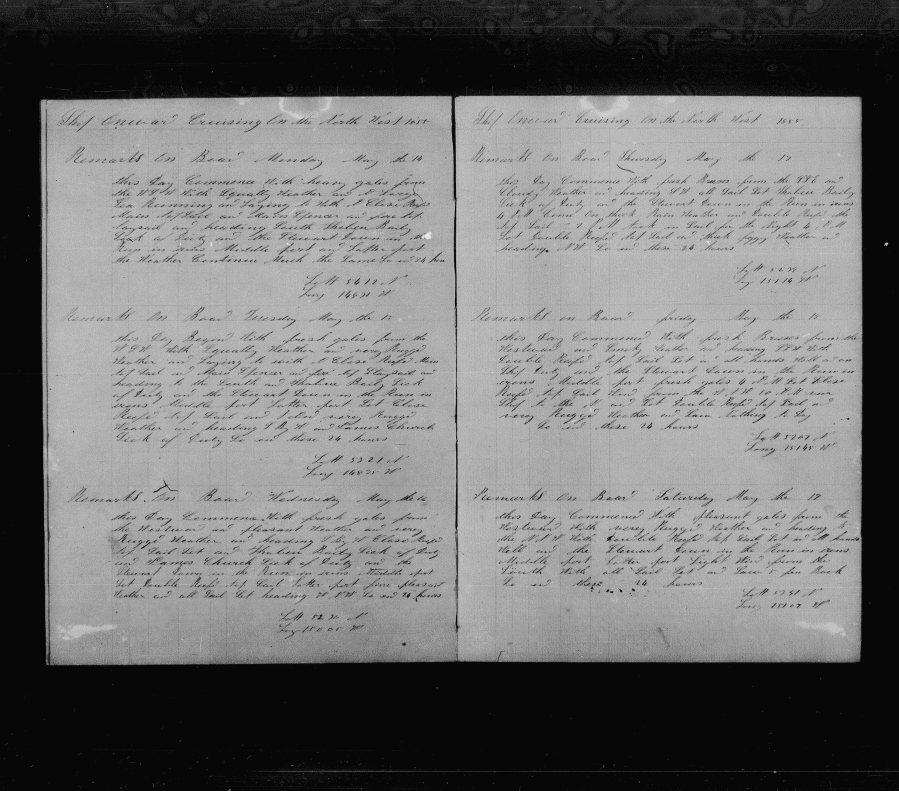 Ship Onward Cruising On the North West 1855
Remarks On Board Monday May the 14
this Day Commenced With heavy gales from
the With Squally Weather and A heavy
Sea Running and Laying to With A Close Reefd
Main topsail and Main Spencer and fore top
Staysail and heading South Thalieu Baily
Sick of Duty and the Steward Down in the
Run in irons Middle part and Latter part
the Weather Continue Much the Same So End 24 hou
Latt 54 12 N
Long 148 31 W
Remarks On Board Tuesday May the 15
this Day Begins With fresh gales from the
With Squally Weather and very Rugged
Weather and Laying to with A Close Reefd Main
top Sail and Main Spencer and fore top Staysail and
heading to the South and Thalieu Baily Sick
of Duty and the Steward Down in the Run in
irons Middle part Latter part Set Close
Reefd top Sail and very Rugged
Weather and heading S By W and James Church
Sick of Duty So End these 24 hours
Latt 53 21 N
Long 148 35 W
Remarks On Board Wednesday May the 16
this Day Commenced With fresh gales from
the Westward and pleasant Weather and very
Rugged Weather and heading S By W Close Reefd
top Sail Set and Thalieu Baily Sick of Duty
and James Church Sick of Duty and the
Steward Down in the Run in irons Middle part
Set Double Reefd top Sail Latter part fine pleasant
Weather and all Sail Set heading W N W So End 24 hours
Latt 52 30 N
Long 150 05 W
Ship Onward Cruising On the North West 1855
Remarks On Board Thursday May the 17
this Day Commenced With fresh Breeses from the and
Cloudy Weather and heading all Sail Set Thalieu Baily
Sick of Duty and the Steward Down in the Run in irons
4 P M Come On thick Rain Weather and Double Reefd the
top Sail at P M took in Sail for the Night 4 A M
Set Double Reefd top Sail and thick foggy Weather and
heading N W So End these 24 hours
Latt 52 38 N
Long 151 14 W
Remarks on Board friday May the 18
this Day Commenced With fresh Breeses from the
Westward and Weather and heading With
Double Reefd top Sail Set and all hands Well and on
Ship Duty and the Steward Down in the Run in
irons Middle part fresh gales 4 A M Set Close
Reefd top Sail Wind from the 10 A M
Ship to the N and Set Double Reefd top Sail and
very Rugged Weather and Saw Nothing to Day
So End these 24 hours
Latt 52 02 N
Long 151 45 W
Remarks On Board Saturday May the 19
this Day Commenced With pleasant gales from the
Westward With very Rugged Weather and heading to
the N N W With Double Reefd top Sail Set and all hands
Well and the Steward Down in the Run in irons
Middle part Latter part Light Wind from the
South With all Sail Set and Saw a
So End these 24 hours
Latt 53 51 N
Long 151 07 W